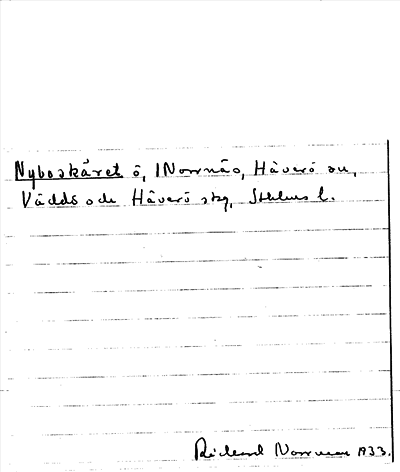 Nyboskäret ö, Norrnäs, Häverö sn,
Väddö och Häverö skg, Sthlms l.
Rickard Norrman 1933.